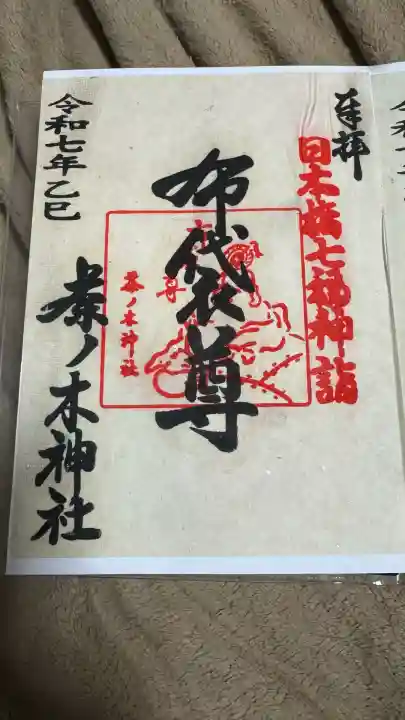 奉拝
日本橋七福神詣
布袋尊
尊
茶ノ木神社
茶ノ木神社
令和七年乙巳